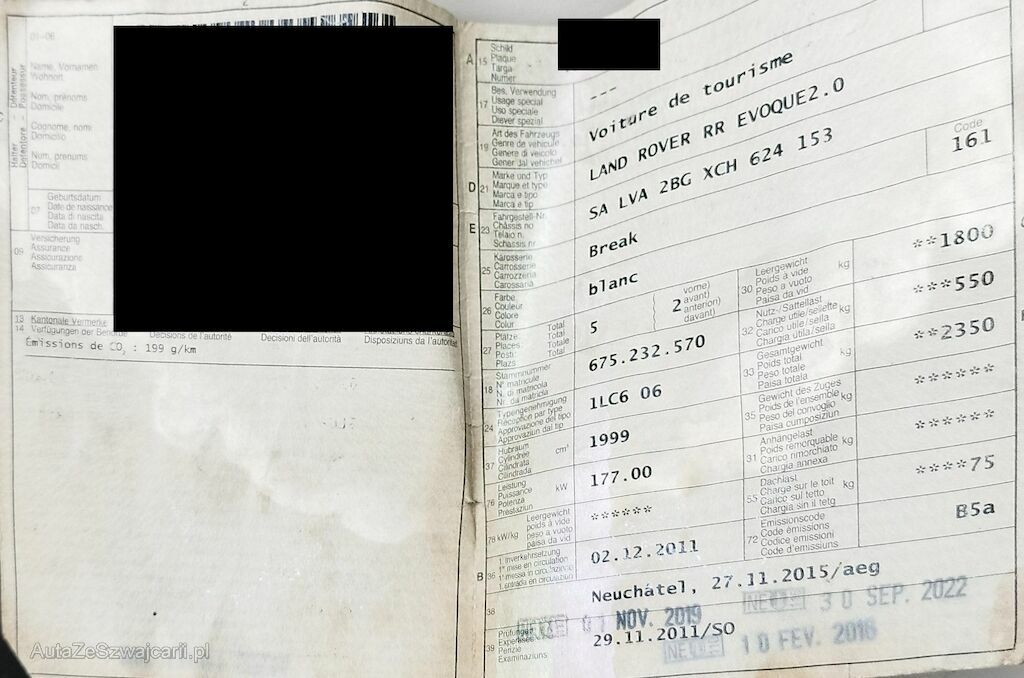 01-06
Halter - Détenteur
Detentore - Possessur
Name, Vornamen
Wohnort
Nom, prénoms
Domicile
Cognome, nomi
Domicilio
Num, prenums
Domicil
07
Geburtsdatum
Date de naissance
Data di nascita
Data da nasch.
09
Versicherung
Assurance
Assicurazione
Assicuranza
13 Kantonale Vermerke
14 Verfügungen der Behörde
Décisions de l'autorité
Decisioni dell'autorità
Disposiziuns da l'autoritad
Emissions de CO2 : 199 g/km
A
15
Schild
Plaque
Targa
Numer
17
Bes. Verwendung
Usage spécial
Uso speciale
Diever spezial
---
19
Art des Fahrzeugs
Genre de véhicule
Genere di veicolo
Gener dal vehichel
Voiture de tourisme
D 21
Marke und Typ
Marque et type
Marca e tipo
Marca e tip
LAND ROVER RR EVOQUE2.0
E 23
Fahrgestell-Nr.
Châssis no
Telaio n.
Schassis nr
SA LVA 2BG XCH 624 153
25
Karosserie
Carrosserie
Carrozzeria
Carossaria
Break
Code
161
26
Farbe
Couleur
Colore
Colur
blanc
27
Plätze: Total
Places: Totale
Posti: Totale
Plazs Total
5
2
vorne)
avant)
anteriori
davant)
30
Leergewicht
Poids à vide
Peso a vuoto
Paisa da vid
kg
**1800
18
Stammnummer
N° matricule
N. di matricola
Nr. da matricla
675.232.570
32
Nutz-/Sattellast
Charge utile/sellette
Carico utile/sella
Chargia utila/sella
kg
***550
24
Typengenehmigung
Réception par type
Approvazione del tipo
Approvaziun dal tip
1LC6 06
33
Gesamtgewicht
Poids total
Peso totale
Paisa totala
kg
**2350
37
Hubraum
Cylindrée
Cilindrata
Cilindrada
cm³
1999
35
Gewicht des Zuges
Poids de l'ensemble
Peso del convoglio
Paisa cumposiziun
kg
******
76
Leistung
Puissance
Potenza
Prestaziun
kW
177.00
31
Anhängelast
Poids remorquable
Carico rimorchiato
Chargia annexa
kg
******
78 kW/kg
Leergewicht
poids à vide
peso a vuoto
paisa da vid
******
55
Dachlast
Charge sur le toit
Carico sul tetto
Chargia sin il tetg
kg
****75
B 36
1. Inverkehrsetzung
1re mise en circulation
1a messa in circolazione
1. entrada en circulaziun
02.12.2011
72
Emissionscode
Code émissions
Codice emissioni
Code d'emissiuns
B5a
38
Neuchâtel, 27.11.2015/aeg
39
Prüfungen
Expertises
Perizie
Examinaziuns
NOV. 2019
30 SEP. 2022
29.11.2011/SO
10 FEV. 2016
AutaZeSzwajcarii.pl